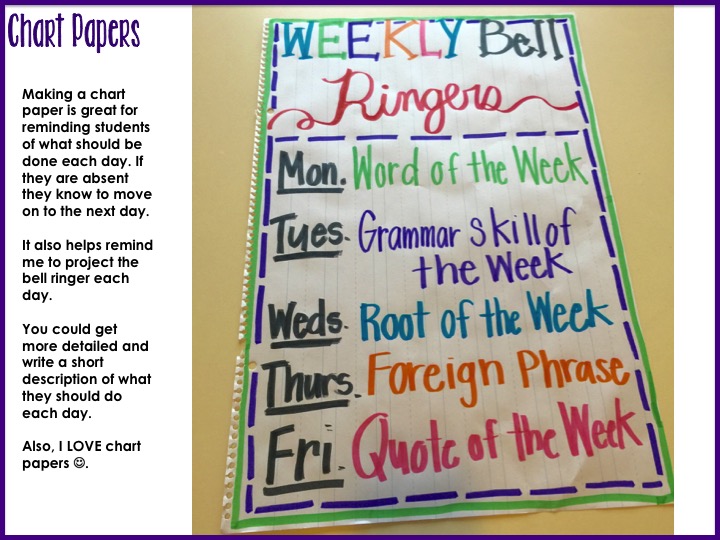 Chart Papers
Making a chart
paper is great for
reminding students
of what should be
done each day. If
they are absent
they know to move
on to the next day.
It also helps remind
me to project the
bell ringer each
day.
You could get
more detailed and
write a short
description of what
they should do
each day.
Also, I LOVE chart
papers ☺.
WEEKLY Bell
Ringers
Mon. Word of the Week
Tues. Grammar skill of
the Week
Weds. Root of the Week
Thurs. Foreign Phrase
Fri. Quote of the Week